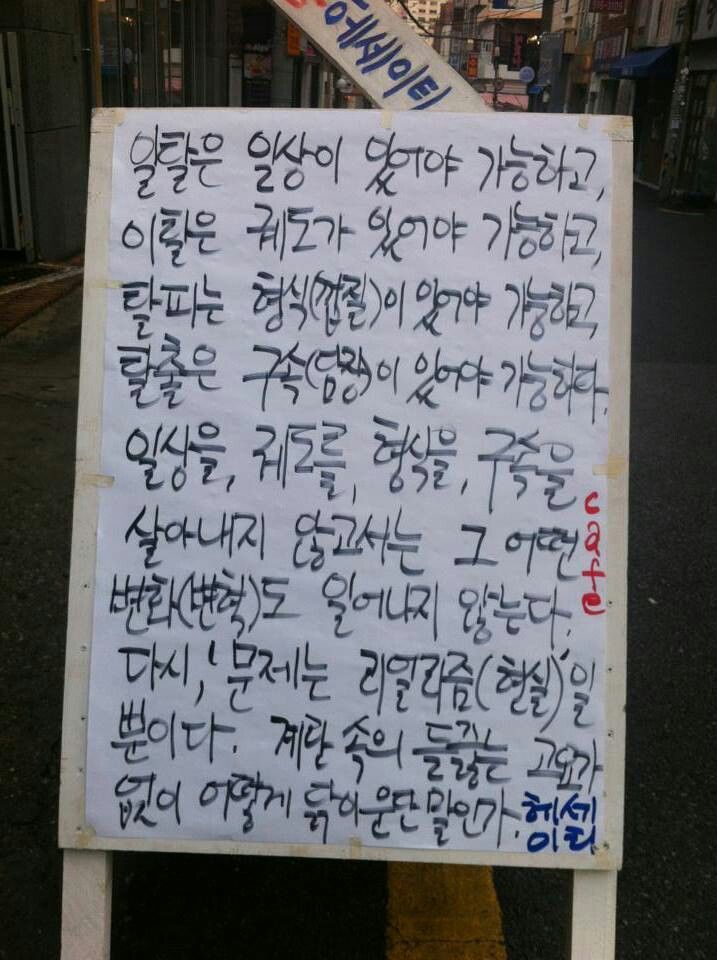 헤세이티
일탈은 일상이 있어야 가능하고,
이탈은 궤도가 있어야 가능하고,
탈피는 형식(껍질)이 있어야 가능하고,
탈출은 구속(담장)이 있어야 가능하다.
일상을, 궤도를, 형식을, 구속을
살아내지 않고서는 그 어떤
변화(변혁)도 일어나지 않는다.
다시, '문제는 리얼리즘(현실)'일
뿐이다. 계란 속의 들끓는 고요가
없이 어떻게 닭이 운단 말인가.
cafe
헤세이티